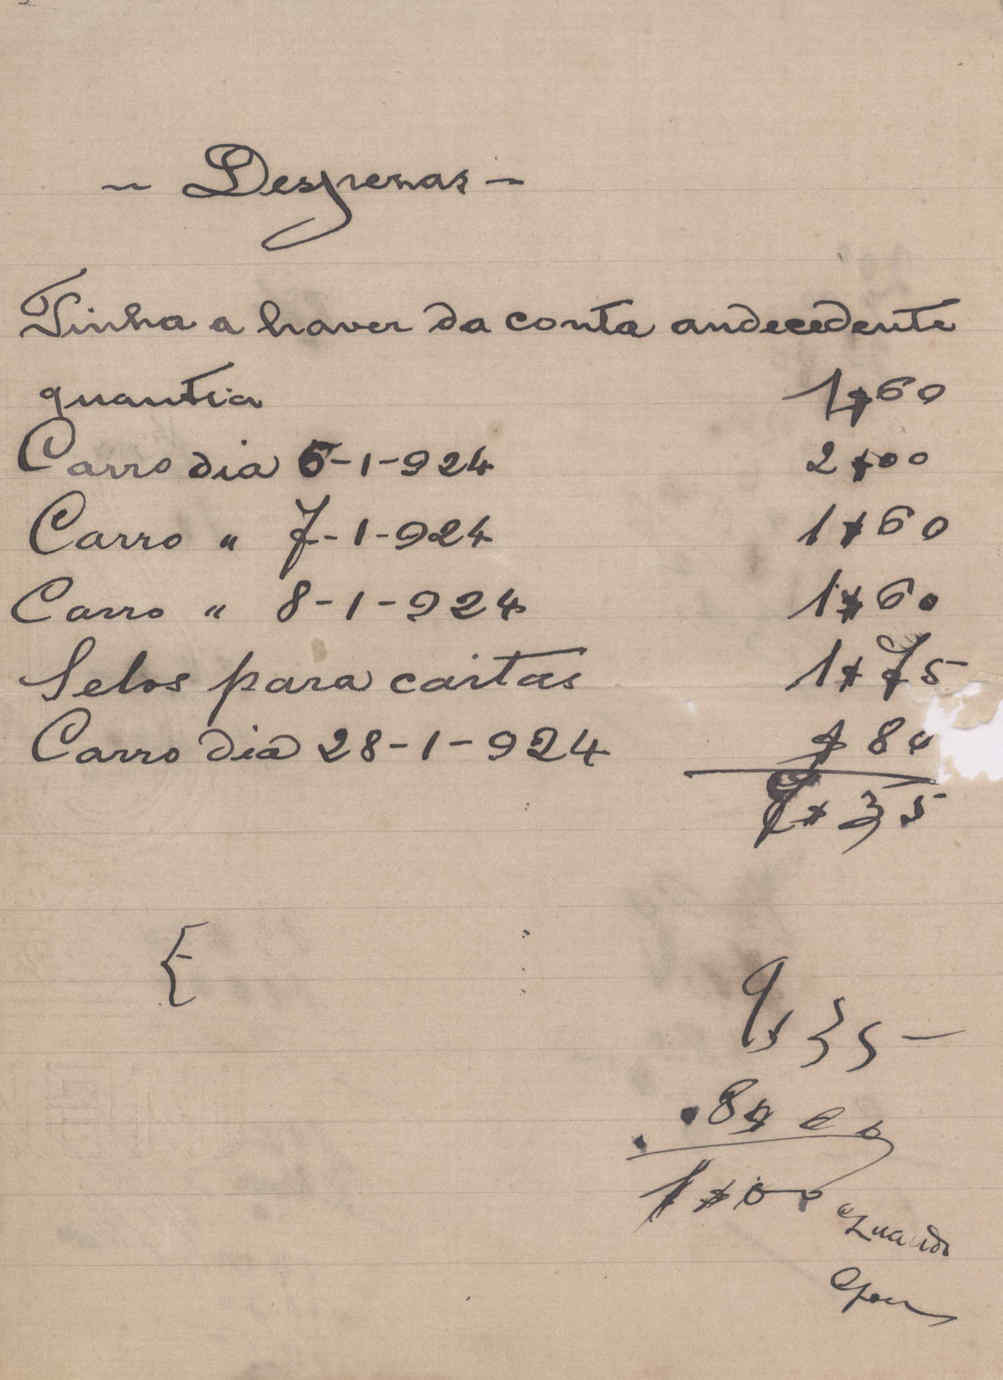 ~ Despesas -
Tinha a haver da conta andecedente
quantia 1$60
Carro dia 5-1-924 2$00
Carro " 7-1-924 1$60
Carro " 8-1-924 1$60
Selos para cartas 1$75
Carro dia 28-1-924 $80
9$35
9$35-
.8$00
1$00